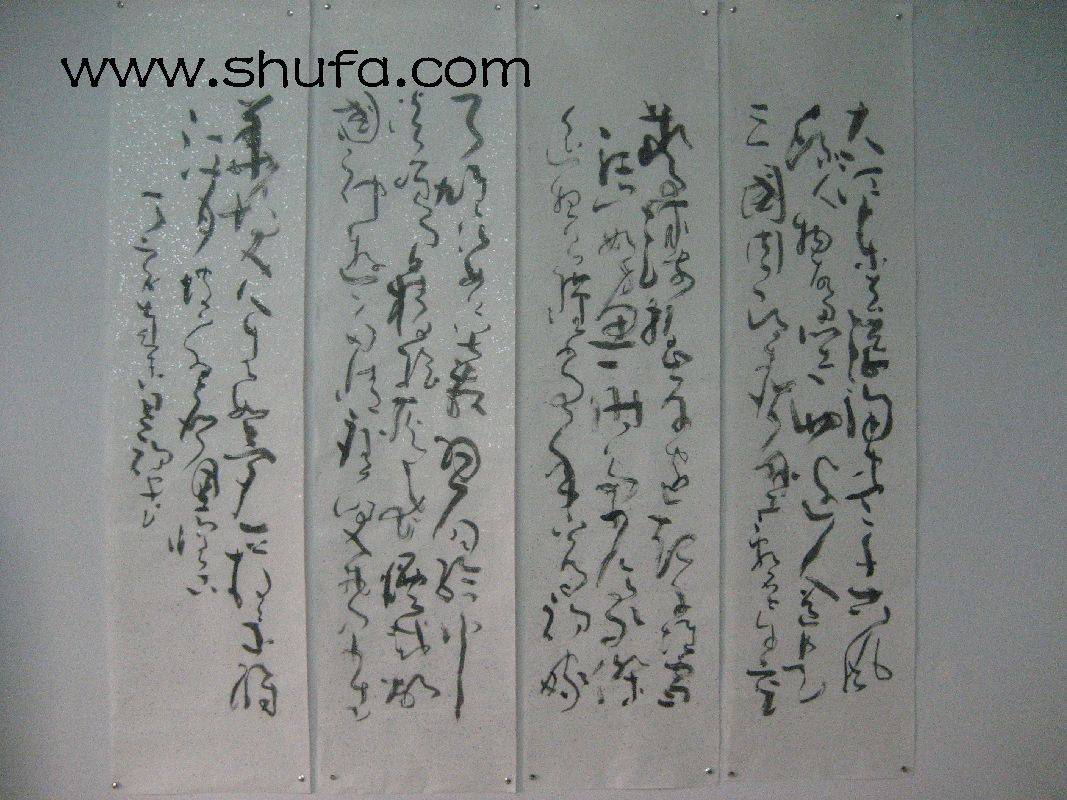 www.shufa.com
大江东去浪淘尽千古风
流人物故垒西边人道是
三國周郎赤壁
岸卷起千堆雪
江山如画一时多少豪杰
遥想公瑾当年小乔初嫁
了雄姿英发羽扇纶巾
谈笑间樯橹灰飞烟灭故
國神游多情应笑我早生
华发人生如梦一尊还酹
江月